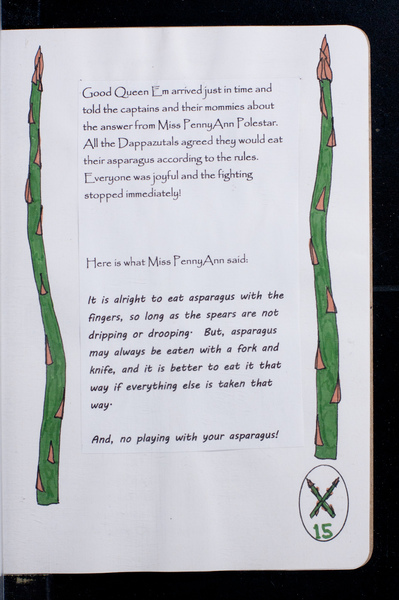 Good Queen Em arrived just in time and
told the captains and their mommies about
the answer from Miss PennyAnn Polestar.
All the Dappazutals agreed they would eat
their asparagus according to the rules.
Everyone was joyful and the fighting
stopped immediately!
Here is what Miss PennyAnn said:
It is alright to eat asparagus with the
fingers, so long as the spears are not
dripping or drooping. But, asparagus
may always be eaten with a fork and
knife, and it is better to eat it that
way if everything else is taken that
way.
And, no playing with your asparagus!
15